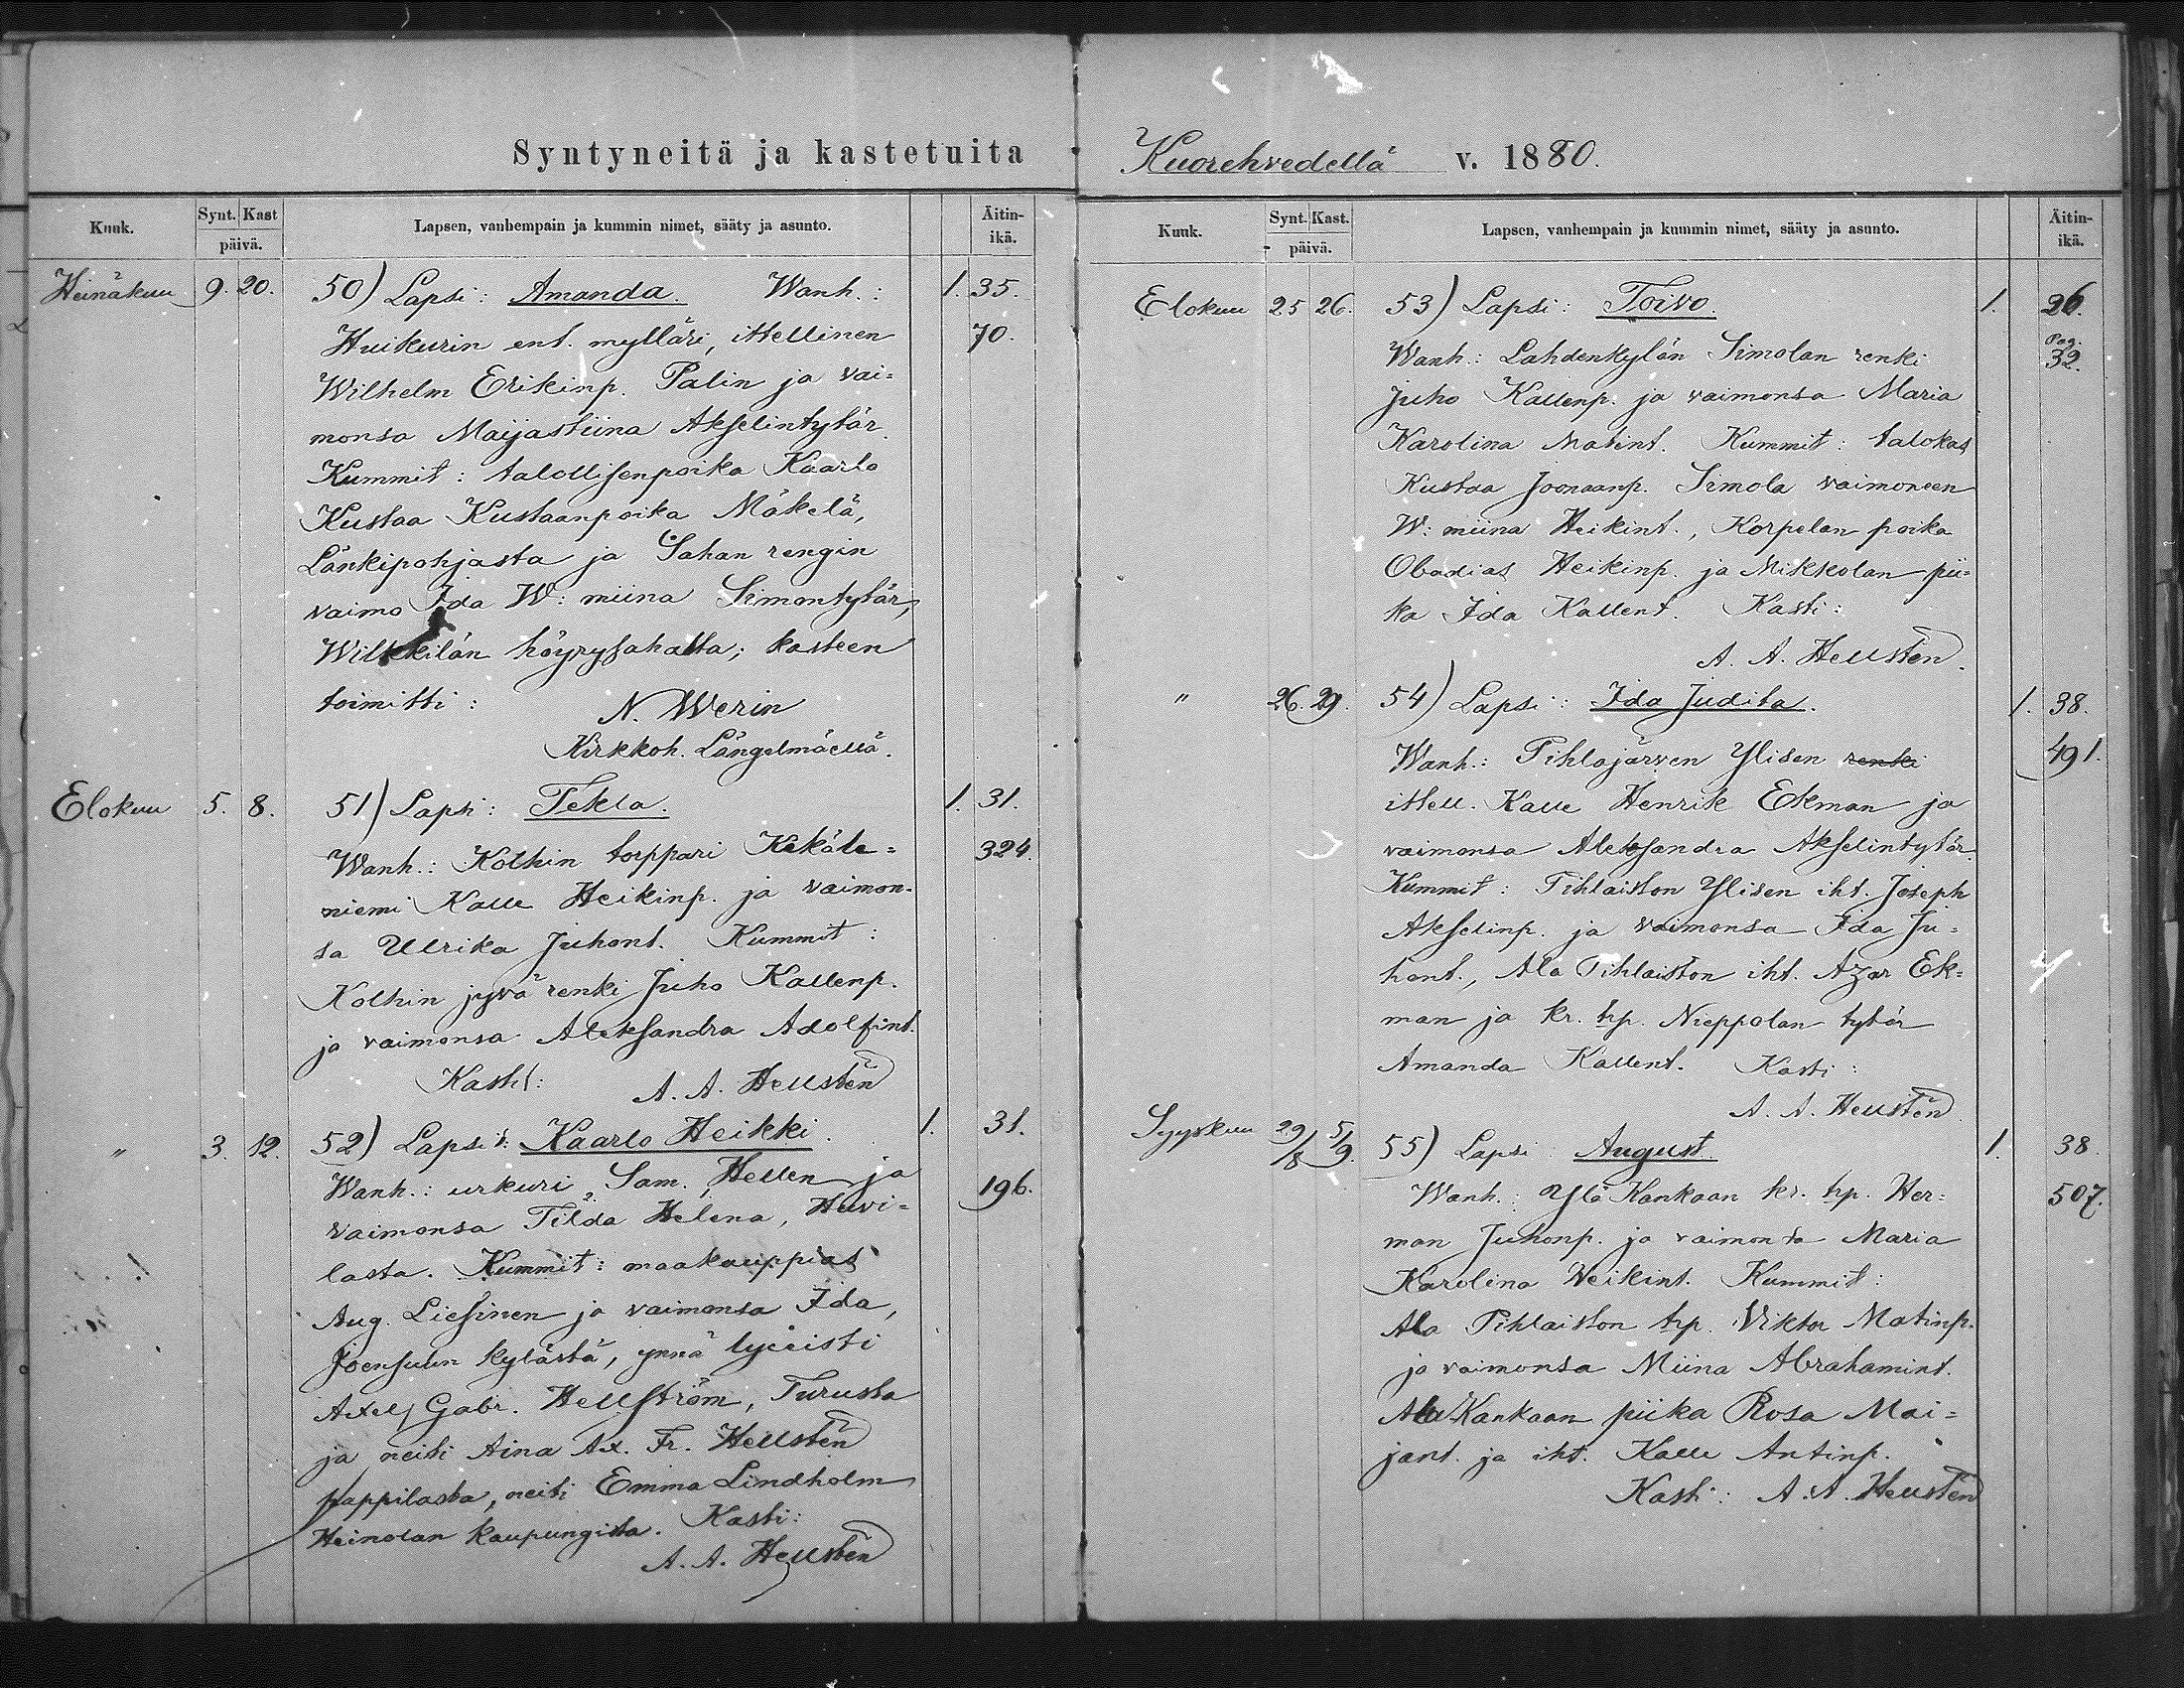 Syntyneitä ja kastetuita
Kuuk. Synt. Kast päivä. Lapsen, vanhempain ja kummin nimet, sääty ja asunto. Äitin-ikä.
Heinäkuu 9. 20. 50) Lapsi: Amanda. Wanh.: 1. 35.
Huikurin ent. mylläri, ittellinen 70.
Wilhelm Erikinp. Palin ja vai=
monsa Maijastiina Akselintytär.
Kummit: talollisenpoika Kaarlo
Kustaa Kustaanpoika Mäkelä,
Länkipohjasta ja Sahan rengin
vaimo Ida W: miina Simontytär,
Wilkkilän höyrysahalta; kasteen
toimitti: N. Werin
Kirkkoh. Längelmäellä.
Elokuu 5. 8. 51) Lapsi: Tekla. 1. 31.
Wanh.: Kolhin torppari Kekäle= 324.
niemi Kalle Heikinp. ja vaimon-
sa Ulrika Juhont. Kummit:
Kolhin jyvä renki Juho Kallenp.
ja vaimonsa Aleksandra Adolfint.
Kasti: A. A. Hellstén
" 3. 12. 52) Lapsi: Kaarlo Heikki. 1. 31.
Wanh.: urkuri Sam. Hellen ja 196.
vaimonsa Tilda Helena, Huvi=
lasta. Kummit: maakauppias
Aug. Liesinen ja vaimonsa Ida,
Joensuun kylästä, ynnä lyseisti
Axel Gabr. Hellström, Turusta
ja neiti Aina Ax. Fr. Hellstén
pappilasta, neiti Emma Lindholm
Heinolan kaupungista. Kasti:
A. A. Hellstén
Kuorehvedellä v. 1880.
Kuuk. Synt. Kast. päivä. Lapsen, vanhempain ja kummin nimet, sääty ja asunto. Äitin-ikä.
Elokuu 25 26. 53) Lapsi: Toivo. 1. 26.
Wanh.: Lahdenkylän Simolan renki Pag. 32.
Juho Kallenp. ja vaimonsa Maria
Karolina Matint. Kummit: talokas
Kustaa Joonaanp. Simola vaimoneen
W: miina Heikint., Korpelan poika
Obadias Heikinp. ja Mikkolan pii=
ka Ida Kallent. Kasti:
A. A. Hellstén.
" 26. 29. 54) Lapsi: Ida Judita. 1. 38.
Wanh.: Pihlajärven Ylisen renki 491.
ittell. Kalle Henrik Ekman ja
vaimonsa Aleksandra Akselintytär.
Kummit: Pihlaiston Ylisen iht. Joseph
Akselinp. ja vaimonsa Ida Ju=
hont., Ala Pihlaiston iht. Azar Ek=
man ja kr. trp. Nieppolan tytär
Amanda Kallent. Kasti:
A. A. Hellstén
Syyskuu 29/8 5/9. 55) Lapsi: August. 1. 38.
Wanh.: Ylä Kankaan kr. trp. Her= 507.
man Juhonp. ja vaimonsa Maria
Karolina Heikint. Kummit:
Ala Pihlaiston trp. Viktor Matinp.
ja vaimonsa Miina Abrahamint.
Ala Kankaan piika Rosa Mai=
jant. ja iht. Kalle Antinp.
Kasti: A. A. Hellstén